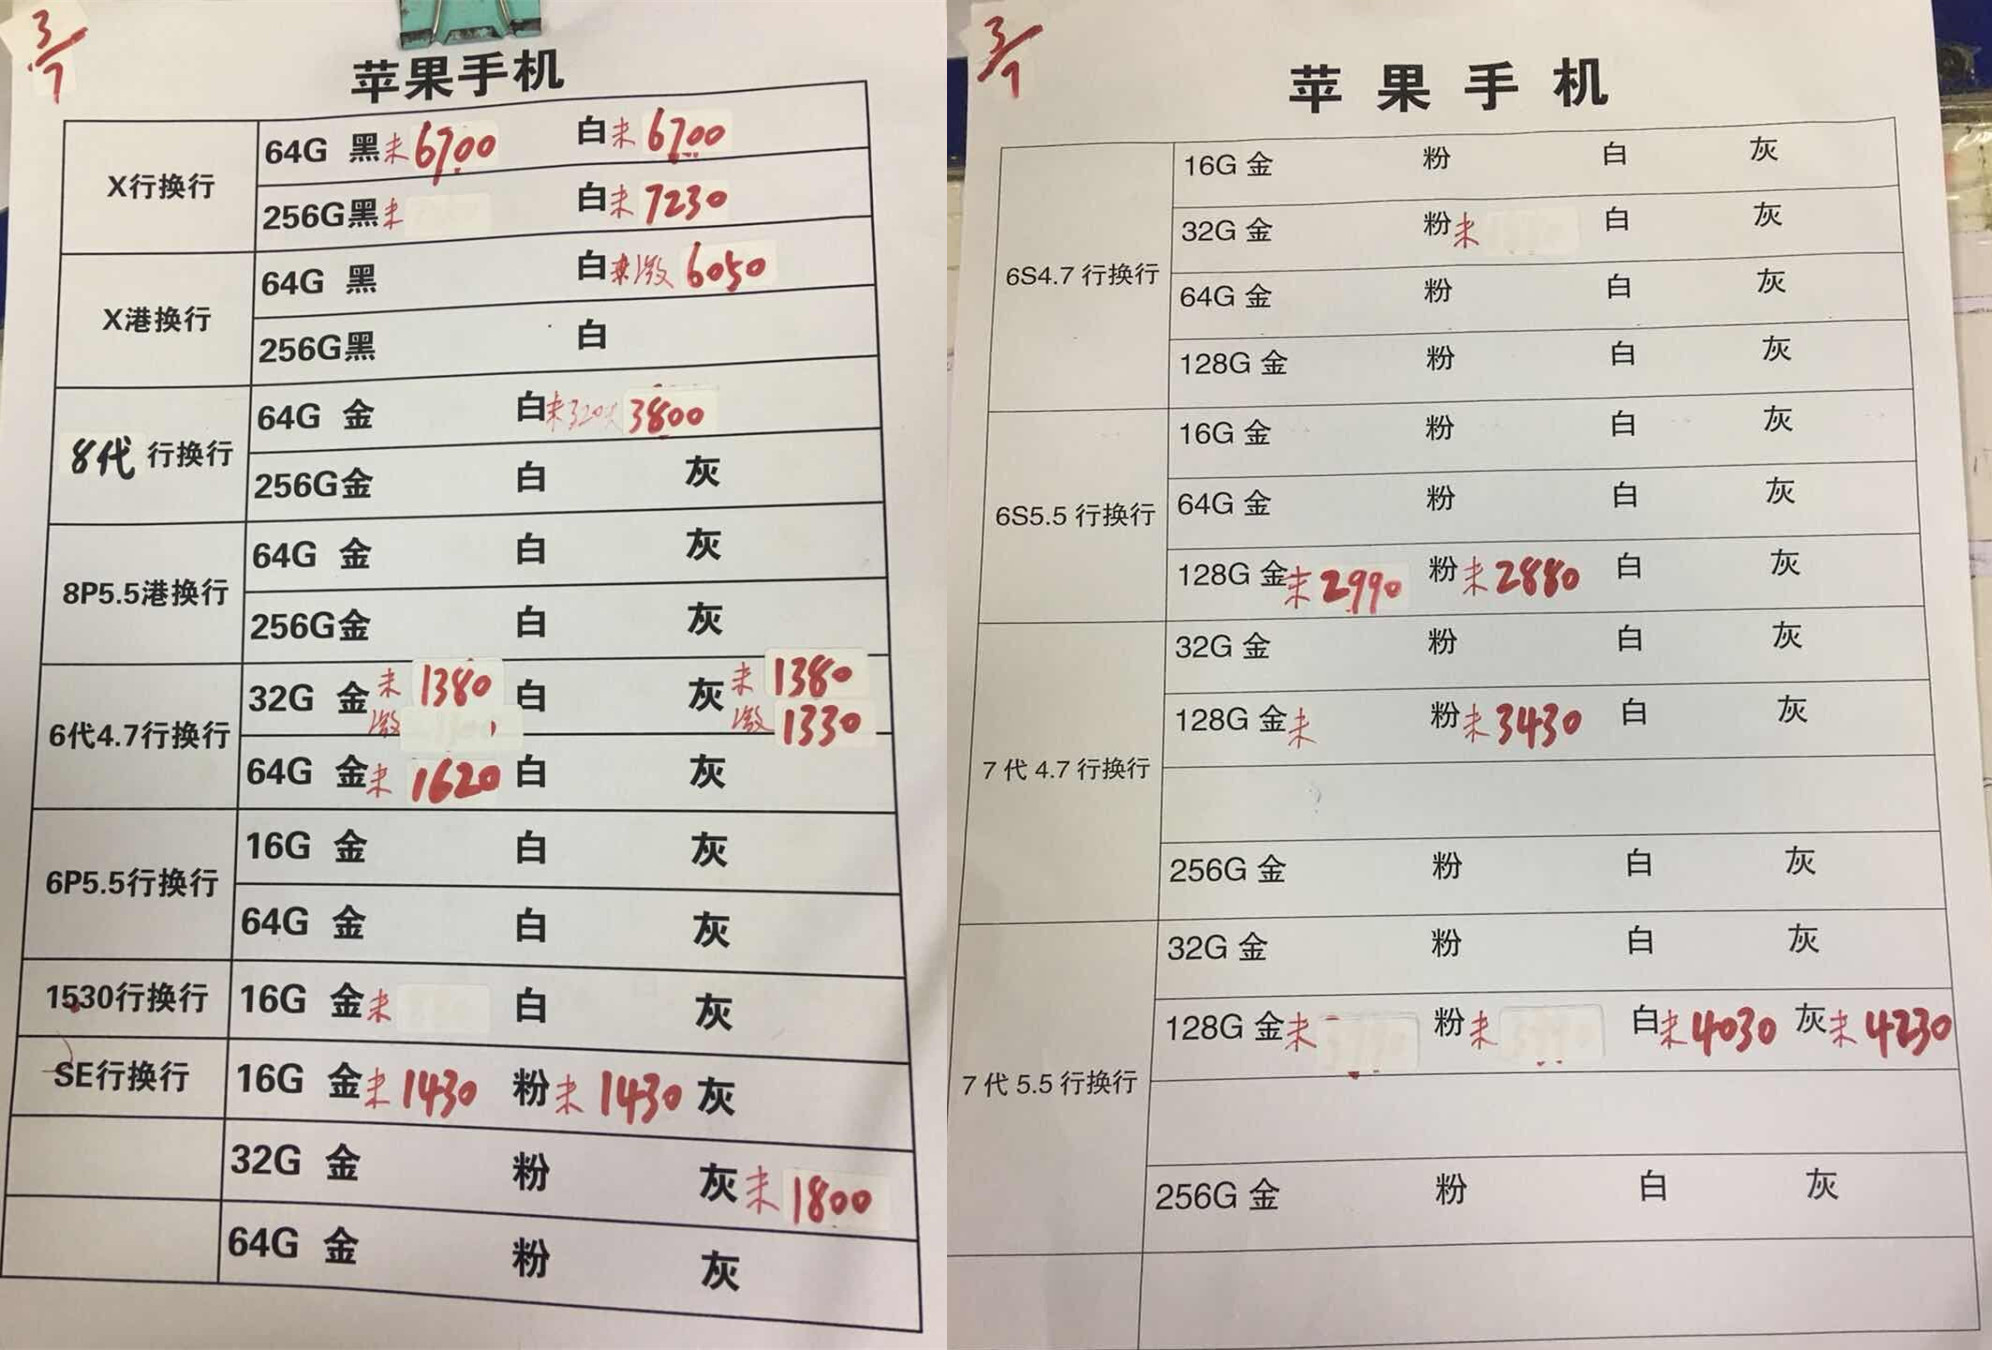 3/7
苹果手机
X行换行
64G 黑未6700 白未6700
256G黑未 白未7230
X港换行
64G 黑 白未激 6050
256G黑 白
8代 行换行
64G 金 白未 3800
256G金 白 灰
8P5.5港换行
64G 金 白 灰
256G金 白 灰
6代4.7行换行
32G 金未 1380 白 灰未 1380
激 激 1330
64G 金未 1620 白 灰
6P5.5行换行
16G 金 白 灰
64G 金 白 灰
1530行换行
16G 金未 白 灰
SE行换行
16G 金未1430 粉未1430 灰
32G 金 粉 灰未1800
64G 金 粉 灰
3/7
苹果手机
6S4.7行换行
16G 金 粉 白 灰
32G 金 粉未 白 灰
64G 金 粉 白 灰
128G 金 粉 白 灰
6S5.5行换行
16G 金 粉 白 灰
64G 金 粉 白 灰
128G 金未2990 粉未2880 白 灰
7代4.7行换行
32G 金 粉 白 灰
128G 金未 粉未3430 白 灰
256G 金 粉 白 灰
7代5.5行换行
32G 金 粉 白 灰
128G 金未 粉未 白未4030 灰未4230
256G 金 粉 白 灰